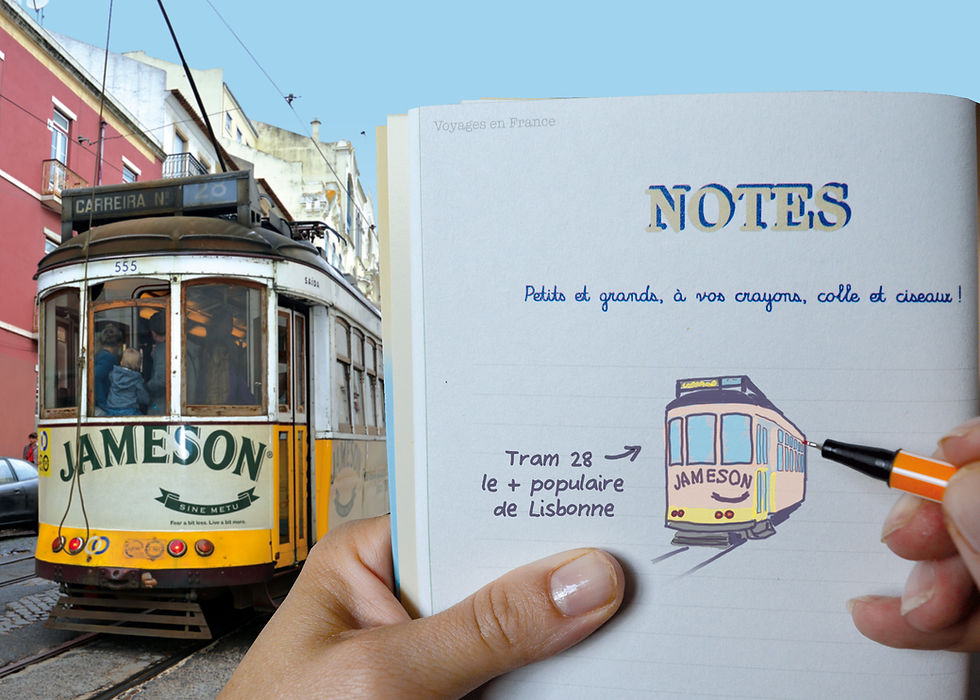 CARREIRA Nº 28
555
SAÍDA
JAMESON®
SINE METU
Fear a bit less. Live a bit more.
Voyages en France
NOTES
Petits et grands, à vos crayons, colle et ciseaux !
Tram 28
le + populaire
de Lisbonne
JAMESON